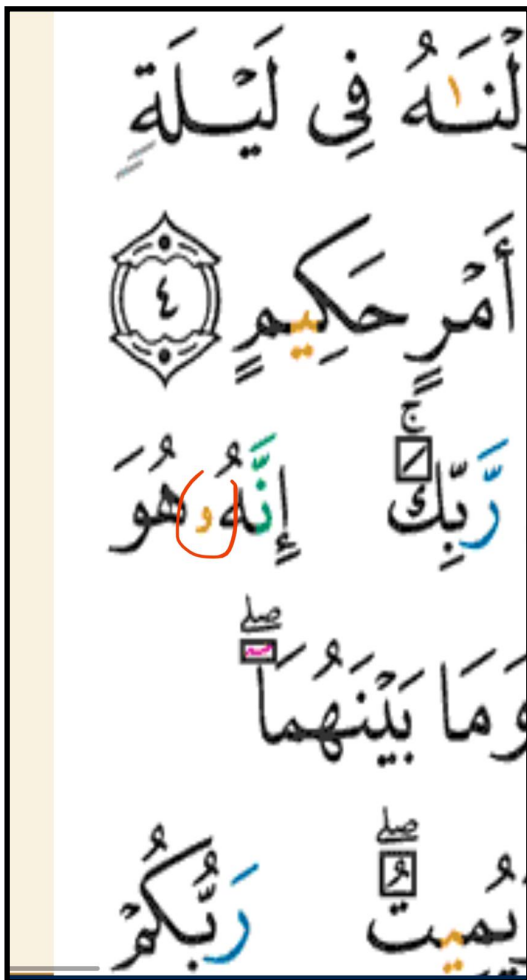 لْنَـٰهُ فِى لَيْلَةٍ
أَمْرٍ حَكِيمٍ ٤
رَّبِّكَ ۚ إِنَّهُۥ هُوَ
وَمَا بَيْنَهُمَا ۖ
يُمِيتُ ۖ رَبُّكُمْ